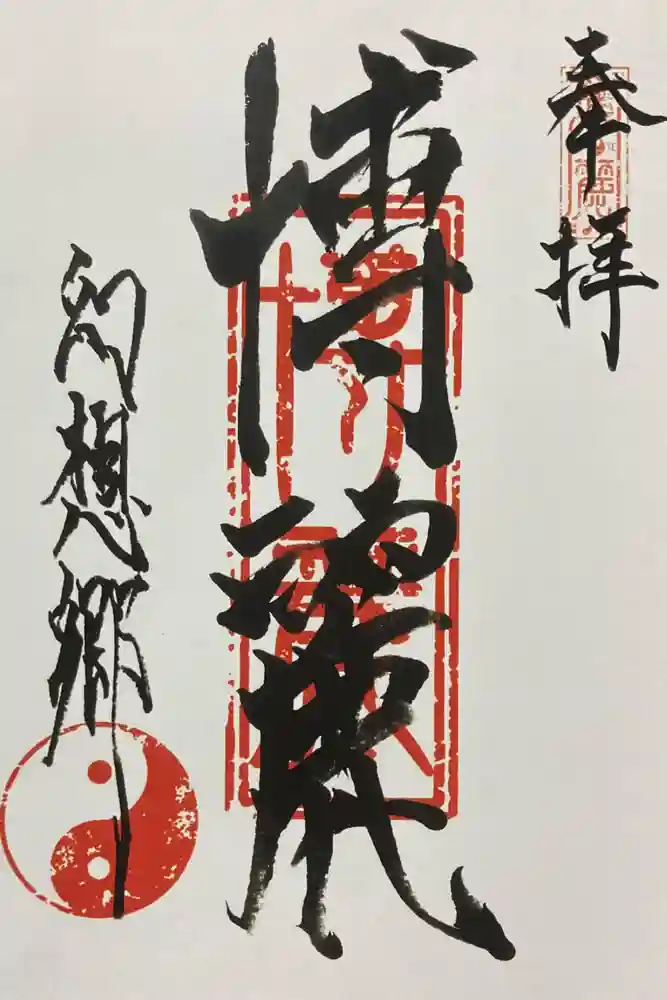 奉拝
博麗
幻想郷